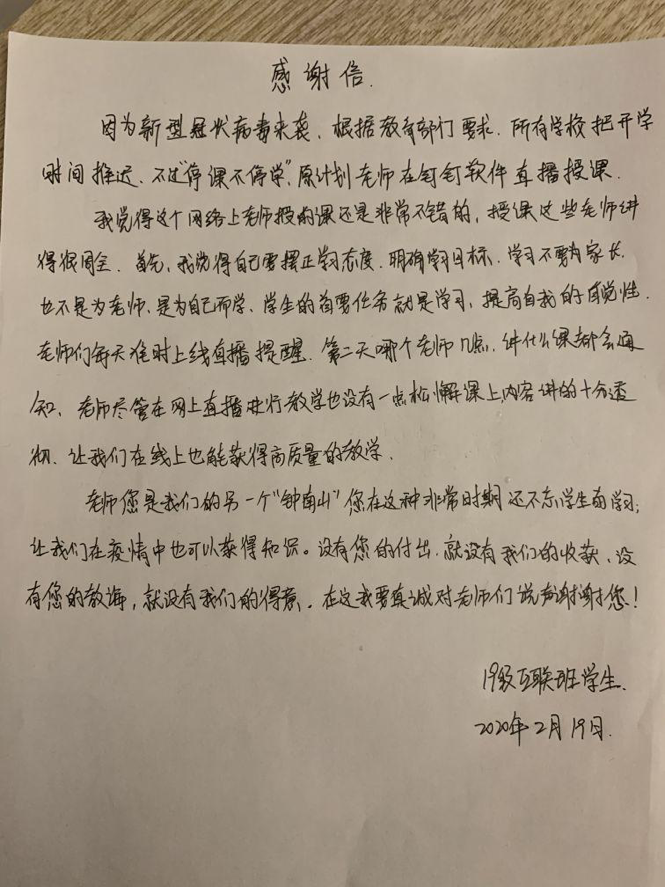 感谢信.
因为新型冠状病毒来袭、根据教育部门要求.所有学校把开学
时间推迟、不过“停课不停学”,原计划老师在钉钉软件直播授课.
我觉得这个网络上老师授的课还是非常不错的,授课这些老师讲
得很周全.首先,我觉得自己要摆正学习态度.明确学习目标.学习不要为家长.
也不是为老师、是为自己而学、学生的首要任务就是学习,提高自我的自觉性.
老师们每天准时上线直播提醒.第二天哪个老师几点,讲什么课都会通
知、老师尽管在网上直播进行教学也没有一点松懈课上内容讲的十分透
彻.让我们在线上也能获得高质量的教学.
老师您是我们的另一个“钟南山”您在这种非常时期还不忘学生的学习;
让我们在疫情中也可以获得知识。没有您的付出.就没有我们的收获、没
有您的教诲,就没有我们的得意.在这我要真诚对老师们说声谢谢您!
19级互联班学生.
2020年2月19日.